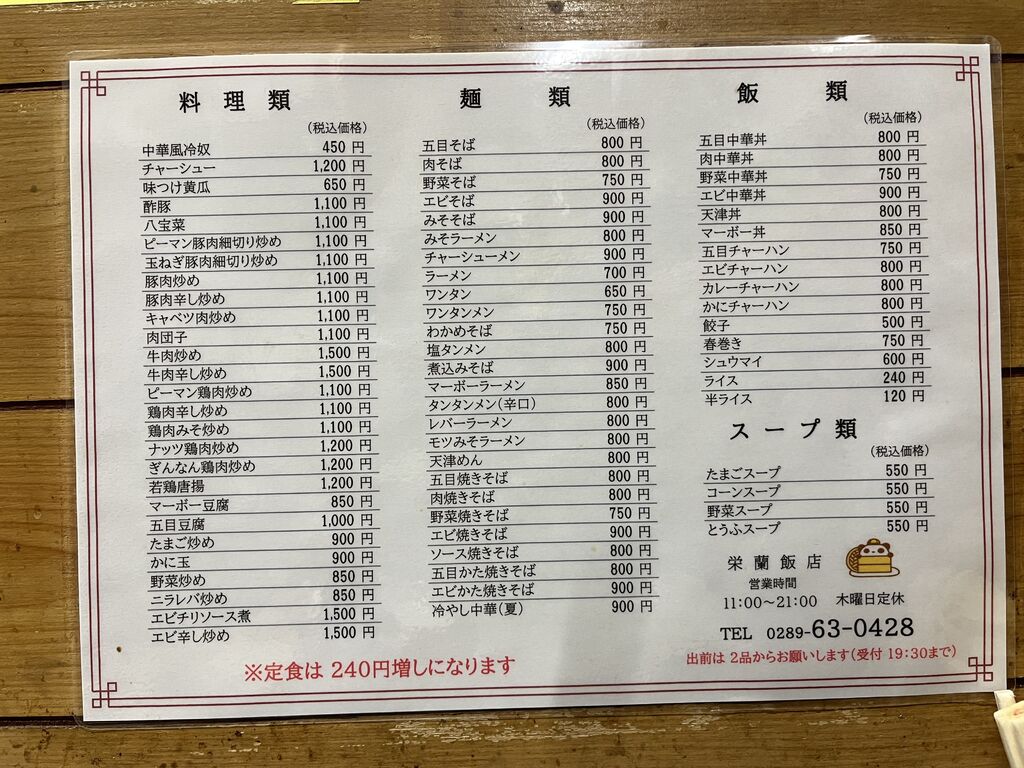 料理類
(税込価格)
中華風冷奴 450 円
チャーシュー 1,200 円
味つけ黄瓜 650 円
酢豚 1,100 円
八宝菜 1,100 円
ピーマン豚肉細切り炒め 1,100 円
玉ねぎ豚肉細切り炒め 1,100 円
豚肉炒め 1,100 円
豚肉辛し炒め 1,100 円
キャベツ肉炒め 1,100 円
肉団子 1,100 円
牛肉炒め 1,500 円
牛肉辛し炒め 1,500 円
ピーマン鶏肉炒め 1,100 円
鶏肉辛し炒め 1,100 円
鶏肉みそ炒め 1,100 円
ナッツ鶏肉炒め 1,200 円
ぎんなん鶏肉炒め 1,200 円
若鶏唐揚 1,200 円
マーボー豆腐 850 円
五目豆腐 1,000 円
たまご炒め 900 円
かに玉 900 円
野菜炒め 850 円
ニラレバ炒め 850 円
エビチリソース煮 1,500 円
エビ辛し炒め 1,500 円
※定食は 240円増しになります
麺類
(税込価格)
五目そば 800 円
肉そば 800 円
野菜そば 750 円
エビそば 900 円
みそそば 900 円
みそラーメン 800 円
チャーシューメン 900 円
ラーメン 700 円
ワンタン 650 円
ワンタンメン 750 円
わかめそば 750 円
塩タンメン 800 円
煮込みそば 900 円
マーボーラーメン 850 円
タンタンメン(辛口) 800 円
レバーラーメン 800 円
モツみそラーメン 800 円
天津めん 800 円
五目焼きそば 800 円
肉焼きそば 800 円
野菜焼きそば 750 円
エビ焼きそば 900 円
ソース焼きそば 800 円
五目かた焼きそば 800 円
エビかた焼きそば 900 円
冷やし中華(夏) 900 円
飯類
(税込価格)
五目中華丼 800 円
肉中華丼 800 円
野菜中華丼 750 円
エビ中華丼 900 円
天津丼 800 円
マーボー丼 850 円
五目チャーハン 750 円
エビチャーハン 800 円
カレーチャーハン 800 円
かにチャーハン 800 円
餃子 500 円
春巻き 750 円
シュウマイ 600 円
ライス 240 円
半ライス 120 円
スープ類
(税込価格)
たまごスープ 550 円
コーンスープ 550 円
野菜スープ 550 円
とうふスープ 550 円
栄蘭飯店
営業時間
11:00～21:00 木曜日定休
TEL 0289-63-0428
出前は 2品からお願いします(受付 19:30まで)